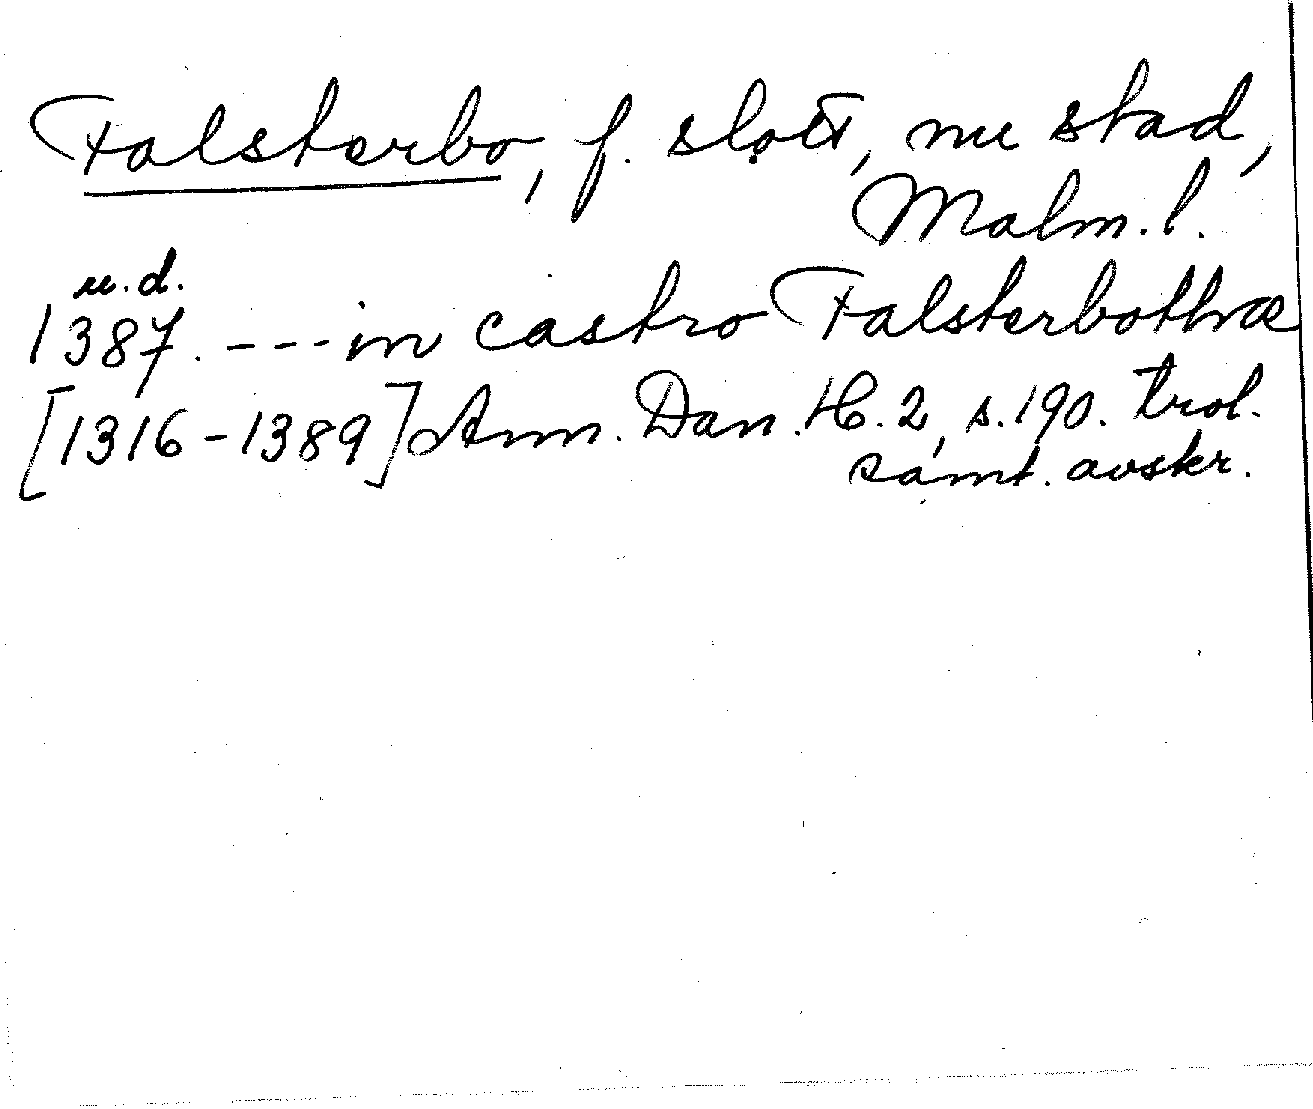 Falsterbo, f. slott, nu stad,
Malm. l.
u.d.
1387. --- in castro Falsterbothræ
[1316-1389] Ann. Dan. H. 2, s. 190. trol.
samt. avskr.